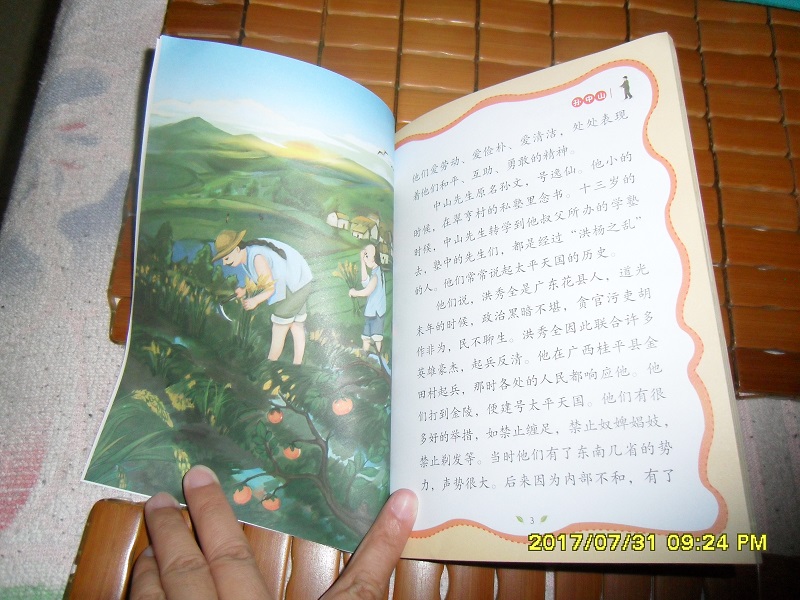 孙中山
他们爱劳动、爱俭朴、爱清洁，处处表现
着他们和平、互助、勇敢的精神。
中山先生原名孙文，号逸仙。他小的
时候，在翠亨村的私塾里念书。十三岁的
时候，中山先生转学到他叔父所办的学塾
去，塾中的先生们，都是经过“洪杨之乱”
的人。他们常常说起太平天国的历史。
他们说，洪秀全是广东花县人，道光
末年的时候，政治黑暗不堪，贪官污吏胡
作非为，民不聊生。洪秀全因此联合许多
英雄豪杰，起兵反清。他在广西桂平县金
田村起兵，那时各处的人民都响应他。他
们打到金陵，便建号太平天国。他们有很
多好的举措，如禁止缠足，禁止奴婢娼妓，
禁止剃发等。当时他们有了东南几省的势
力，声势很大。后来因为内部不和，有了
3
2017/07/31 09:24 PM